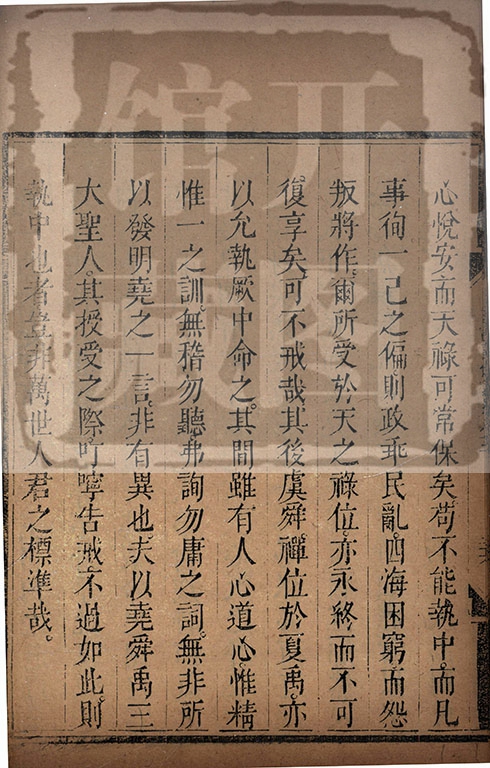 心悅安而天祿可常保矣苟不能執中而凡
事徇一己之偏則政乖民亂四海困窮而怨
叛將作爾所受於天之祿位亦永終而不可
復享矣可不戒哉其後虞舜禪位於夏禹亦
以允執厥中命之其間雖有人心道心惟精
惟一之訓無稽勿聽弗詢勿庸之詞無非所
以發明堯之一言非有異也夫以堯舜禹三
大聖人其授受之際叮嚀告戒不過如此則
執中也者豈非萬世人君之標準哉